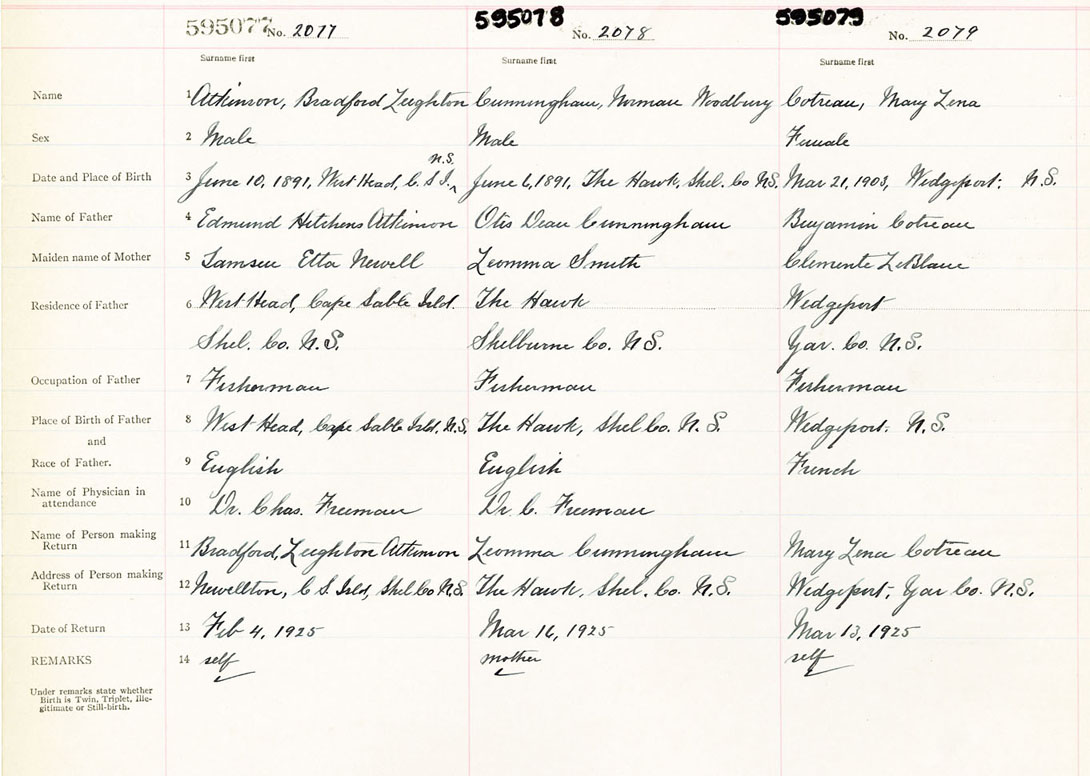 595077 No. 2077 595078 No. 2078 595079 No. 2079
Surname first Surname first Surname first
Name 1 Atkinson, Bradford Leighton Cunningham, Norman Woodbury Cotreau, Mary Lena
Sex 2 Male Male Female
n.s.
Date and Place of Birth 3 June 10, 1891, West Head, C. S I. June 6, 1891, The Hawk, Shel. Co N.S. Mar 21, 1903, Wedgeport. N.S.
Name of Father 4 Edmund Hitchens Atkinson Otis Dean Cunningham Benjamin Cotreau
Maiden name of Mother 5 Etta Newell Leomma Smith Clemente LeBlanc
Residence of Father 6 West Head, Cape Sable Isld. The Hawk Wedgeport
Shel. Co. N.S. Shelburne Co. N S. Yar. Co. N.S.
Occupation of Father 7 Fisherman Fisherman Fisherman
Place of Birth of Father 8 West Head, Cape Sable Isld. N.S. The Hawk, Shel Co. N. S. Wedgeport. N.S.
and
Race of Father. 9 English English French
Name of Physician in
attendance 10 Dr. Chas. Freeman Dr. C. Freeman
Name of Person making
Return 11 Bradford, Leighton Atkinson Leomma Cunningham Mary Lena Cotreau
Address of Person making
Return 12 Newellton, C S Isld, Shel Co N.S. The Hawk, Shel. Co. N.S. Wedgeport, Yar Co. N.S.
Date of Return 13 Feb 4, 1925 Mar 16, 1925 Mar 13, 1925
REMARKS 14 self mother self
Under remarks state whether
Birth is Twin, Triplet, Ille-
gitimate or Still-birth.